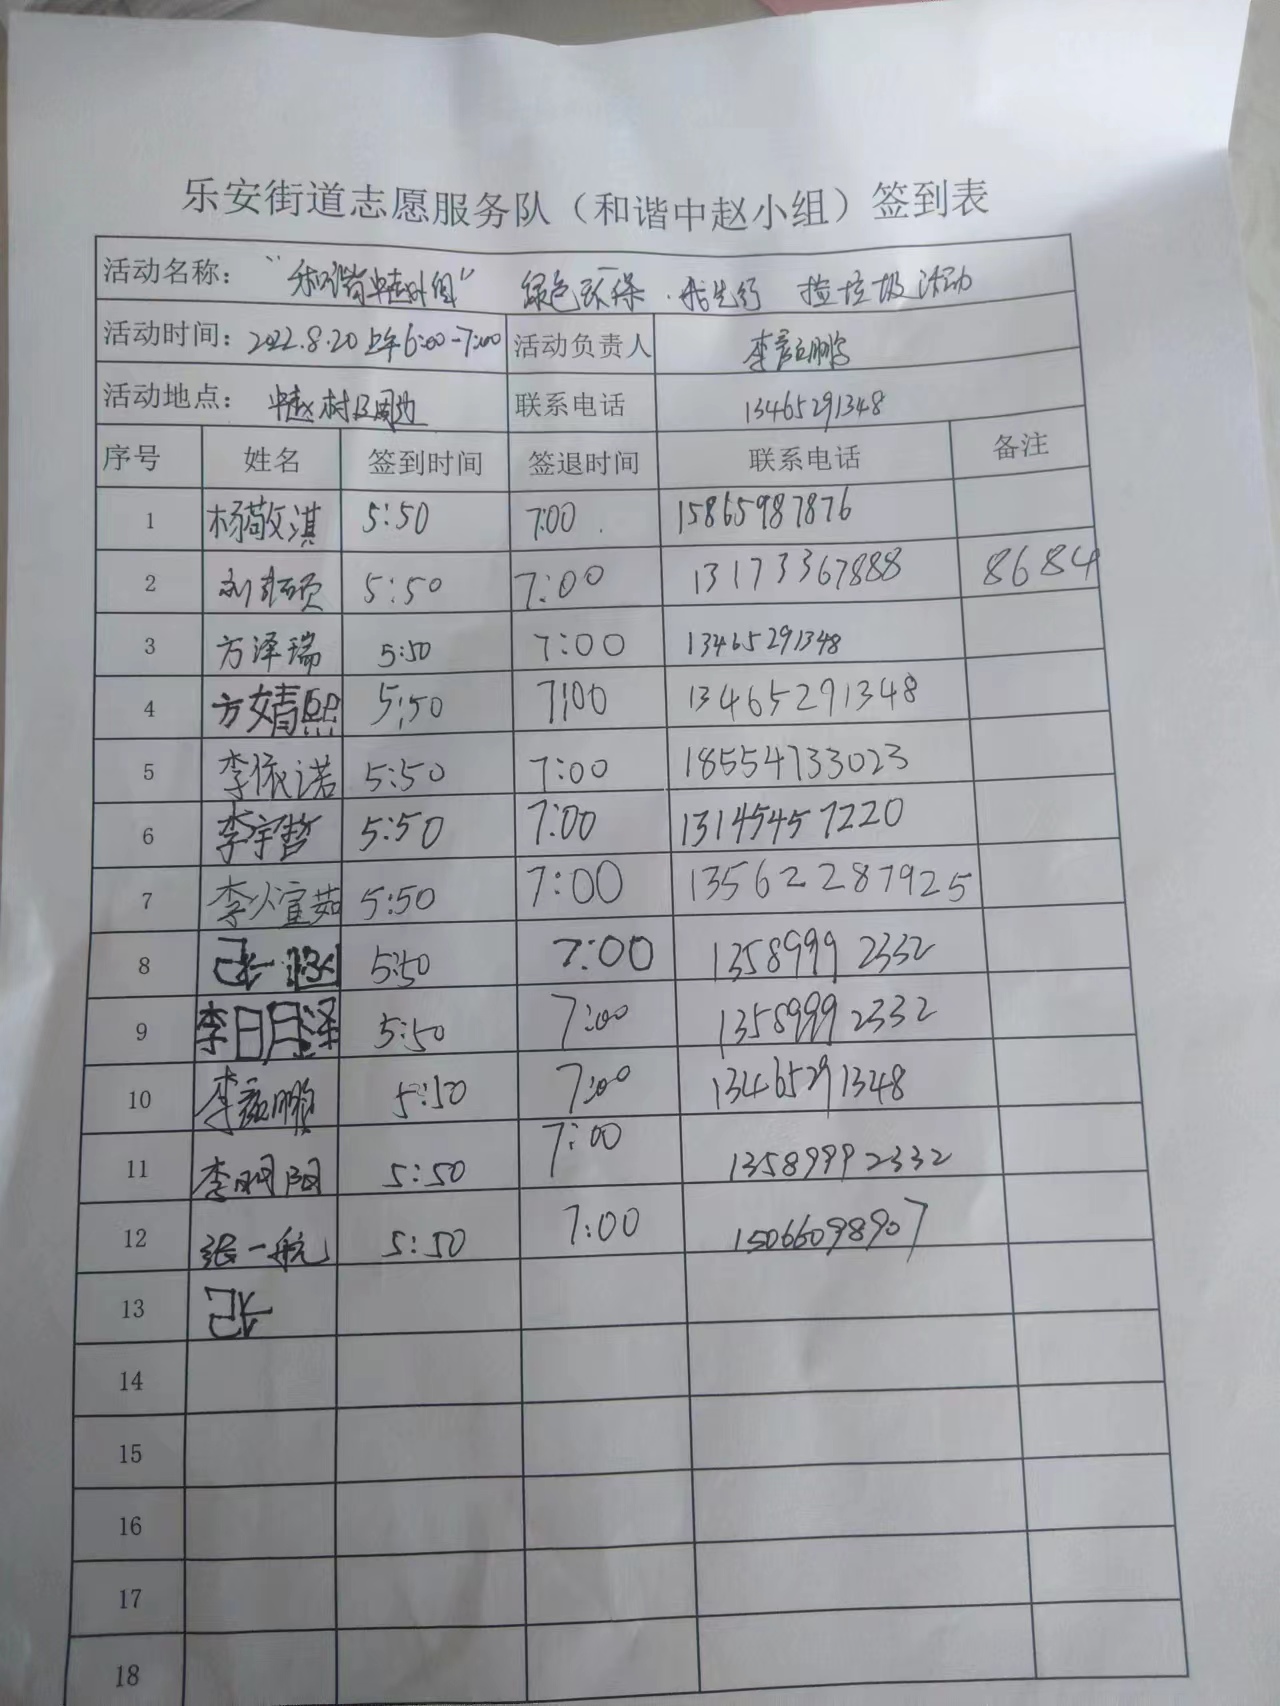 乐安街道志愿服务队（和谐中赵小组）签到表
活动名称： “和谐中赵小组” 绿色环保．我先行 捡垃圾活动
活动时间：2022.8.20上午6:00-7:00 活动负责人 李彦鹏
活动地点： 中赵村及周边 联系电话 13465291348
序号 姓名 签到时间 签退时间 联系电话 备注
1 杨敬淇 5:50 7:00 15865987876
2 刘 5:50 7:00 13173367888 8684
3 方泽瑞 5:50 7:00 13465291348
4 方婧熙 5:50 7:00 13465291348
5 李依诺 5:50 7:00 18554733023
6 李宇哲 5:50 7:00 13145457220
7 李煊茹 5:50 7:00 13562287925
8 5:50 7:00 13589992332
9 李明泽 5:50 7:00 13589992332
10 李彦鹏 5:50 7:00 13465291348
11 李明阳 5:50 7:00 13589992332
12 张一航 5:50 7:00 15066098907
13
14
15
16
17
18